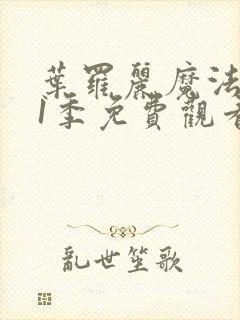 葉羅麗魔法
1季免費觀看
亂世笙歌